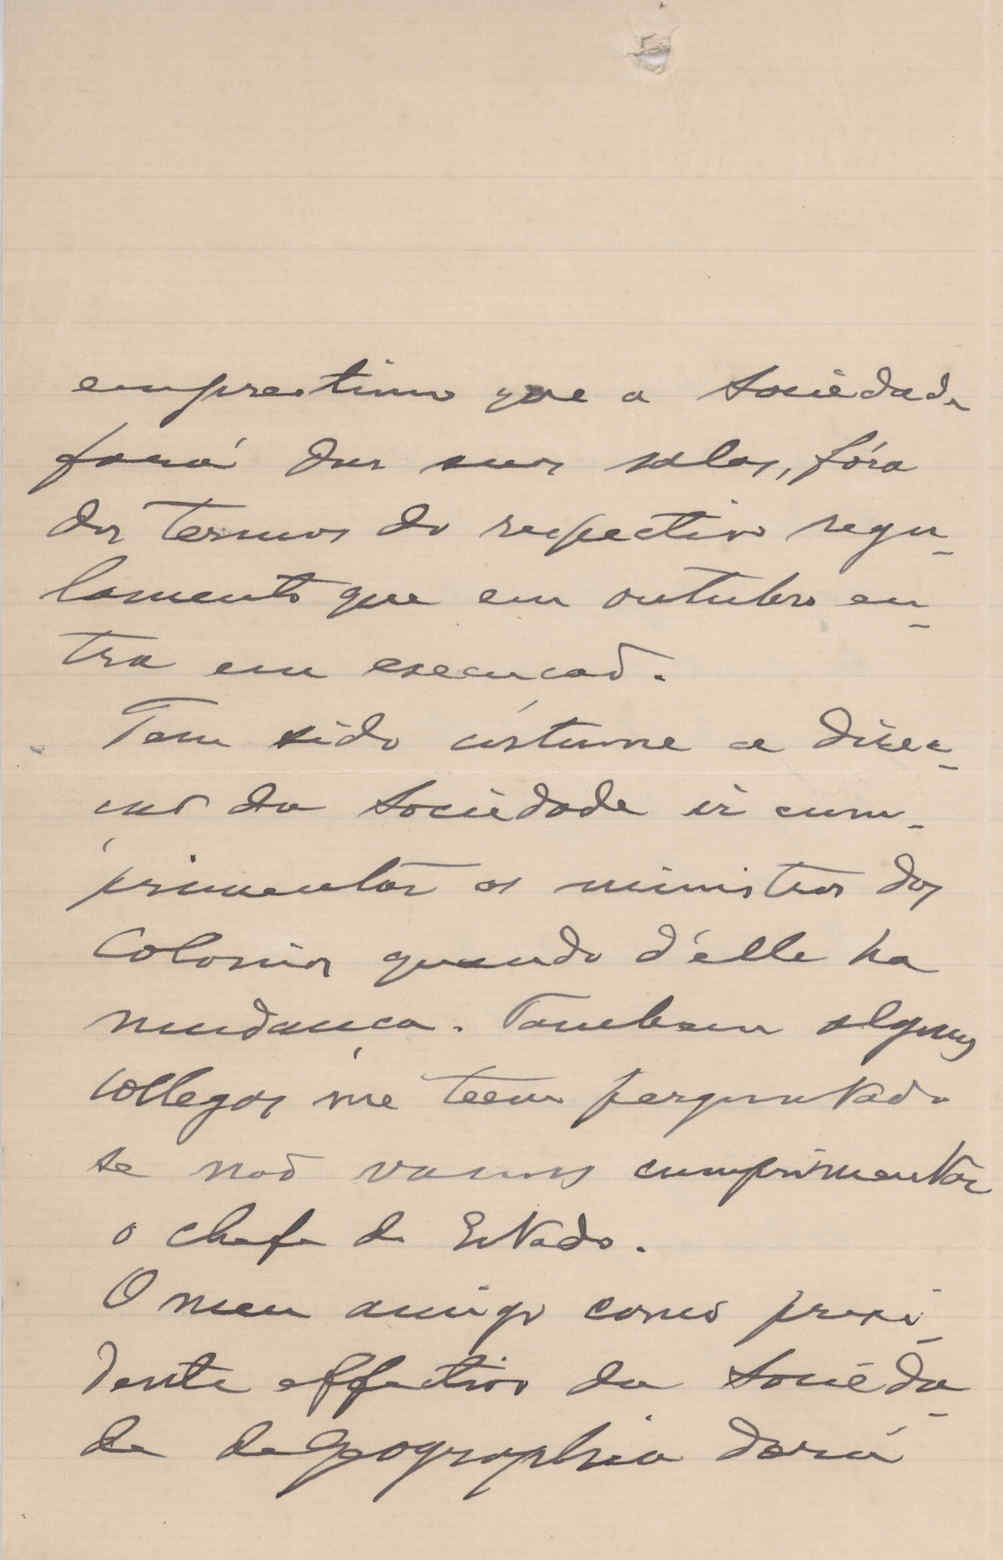 emprestimo que a Sociedade
fará das suas salas, fóra
dos termos do respectivo regu-
lamento que em outubro en-
tra em execução.
Tem sido costume a direc-
ção da Sociedade ir cum-
primentar os ministros das
Colonias quando d'élle ha
mudança. Tambem alguns
collegas me teem perguntado
se não vamos cumprimentar
o chefe de Estado.
O meu amigo como presi-
dente effectivo da Socieda-
de de Geographia dará